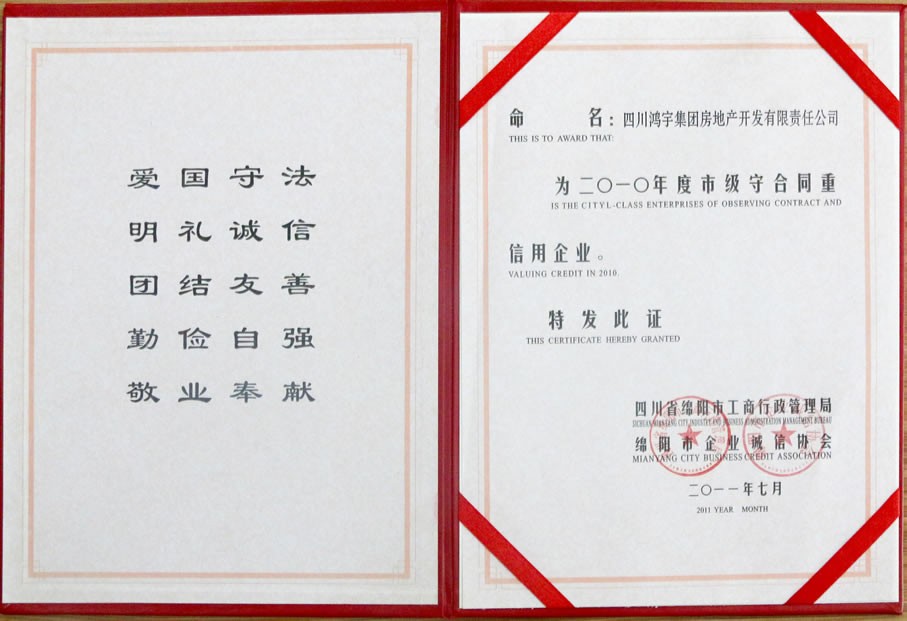 爱国守法
明礼诚信
团结友善
勤俭自强
敬业奉献
命 名：四川鸿宇集团房地产开发有限责任公司
THIS IS TO AWARD THAT:
为二〇一〇年度市级守合同重
IS THE CITYL-CLASS ENTERPRISES OF OBSERVING CONTRACT AND
信用企业。
VALUING CREDIT IN 2010.
特发此证
THIS CERTIFICATE HEREBY GRANTED
四川省绵阳市工商行政管理局
SICHUAN MIANYANG CITY INDUSTRY AND BUSINESS ADMINISTRATION MANAGEMENT BUREAU
绵阳市企业诚信协会
MIANYANG CITY BUSINESS CREDIT ASSOCIATION
二〇一一年七月
2011 YEAR MONTH